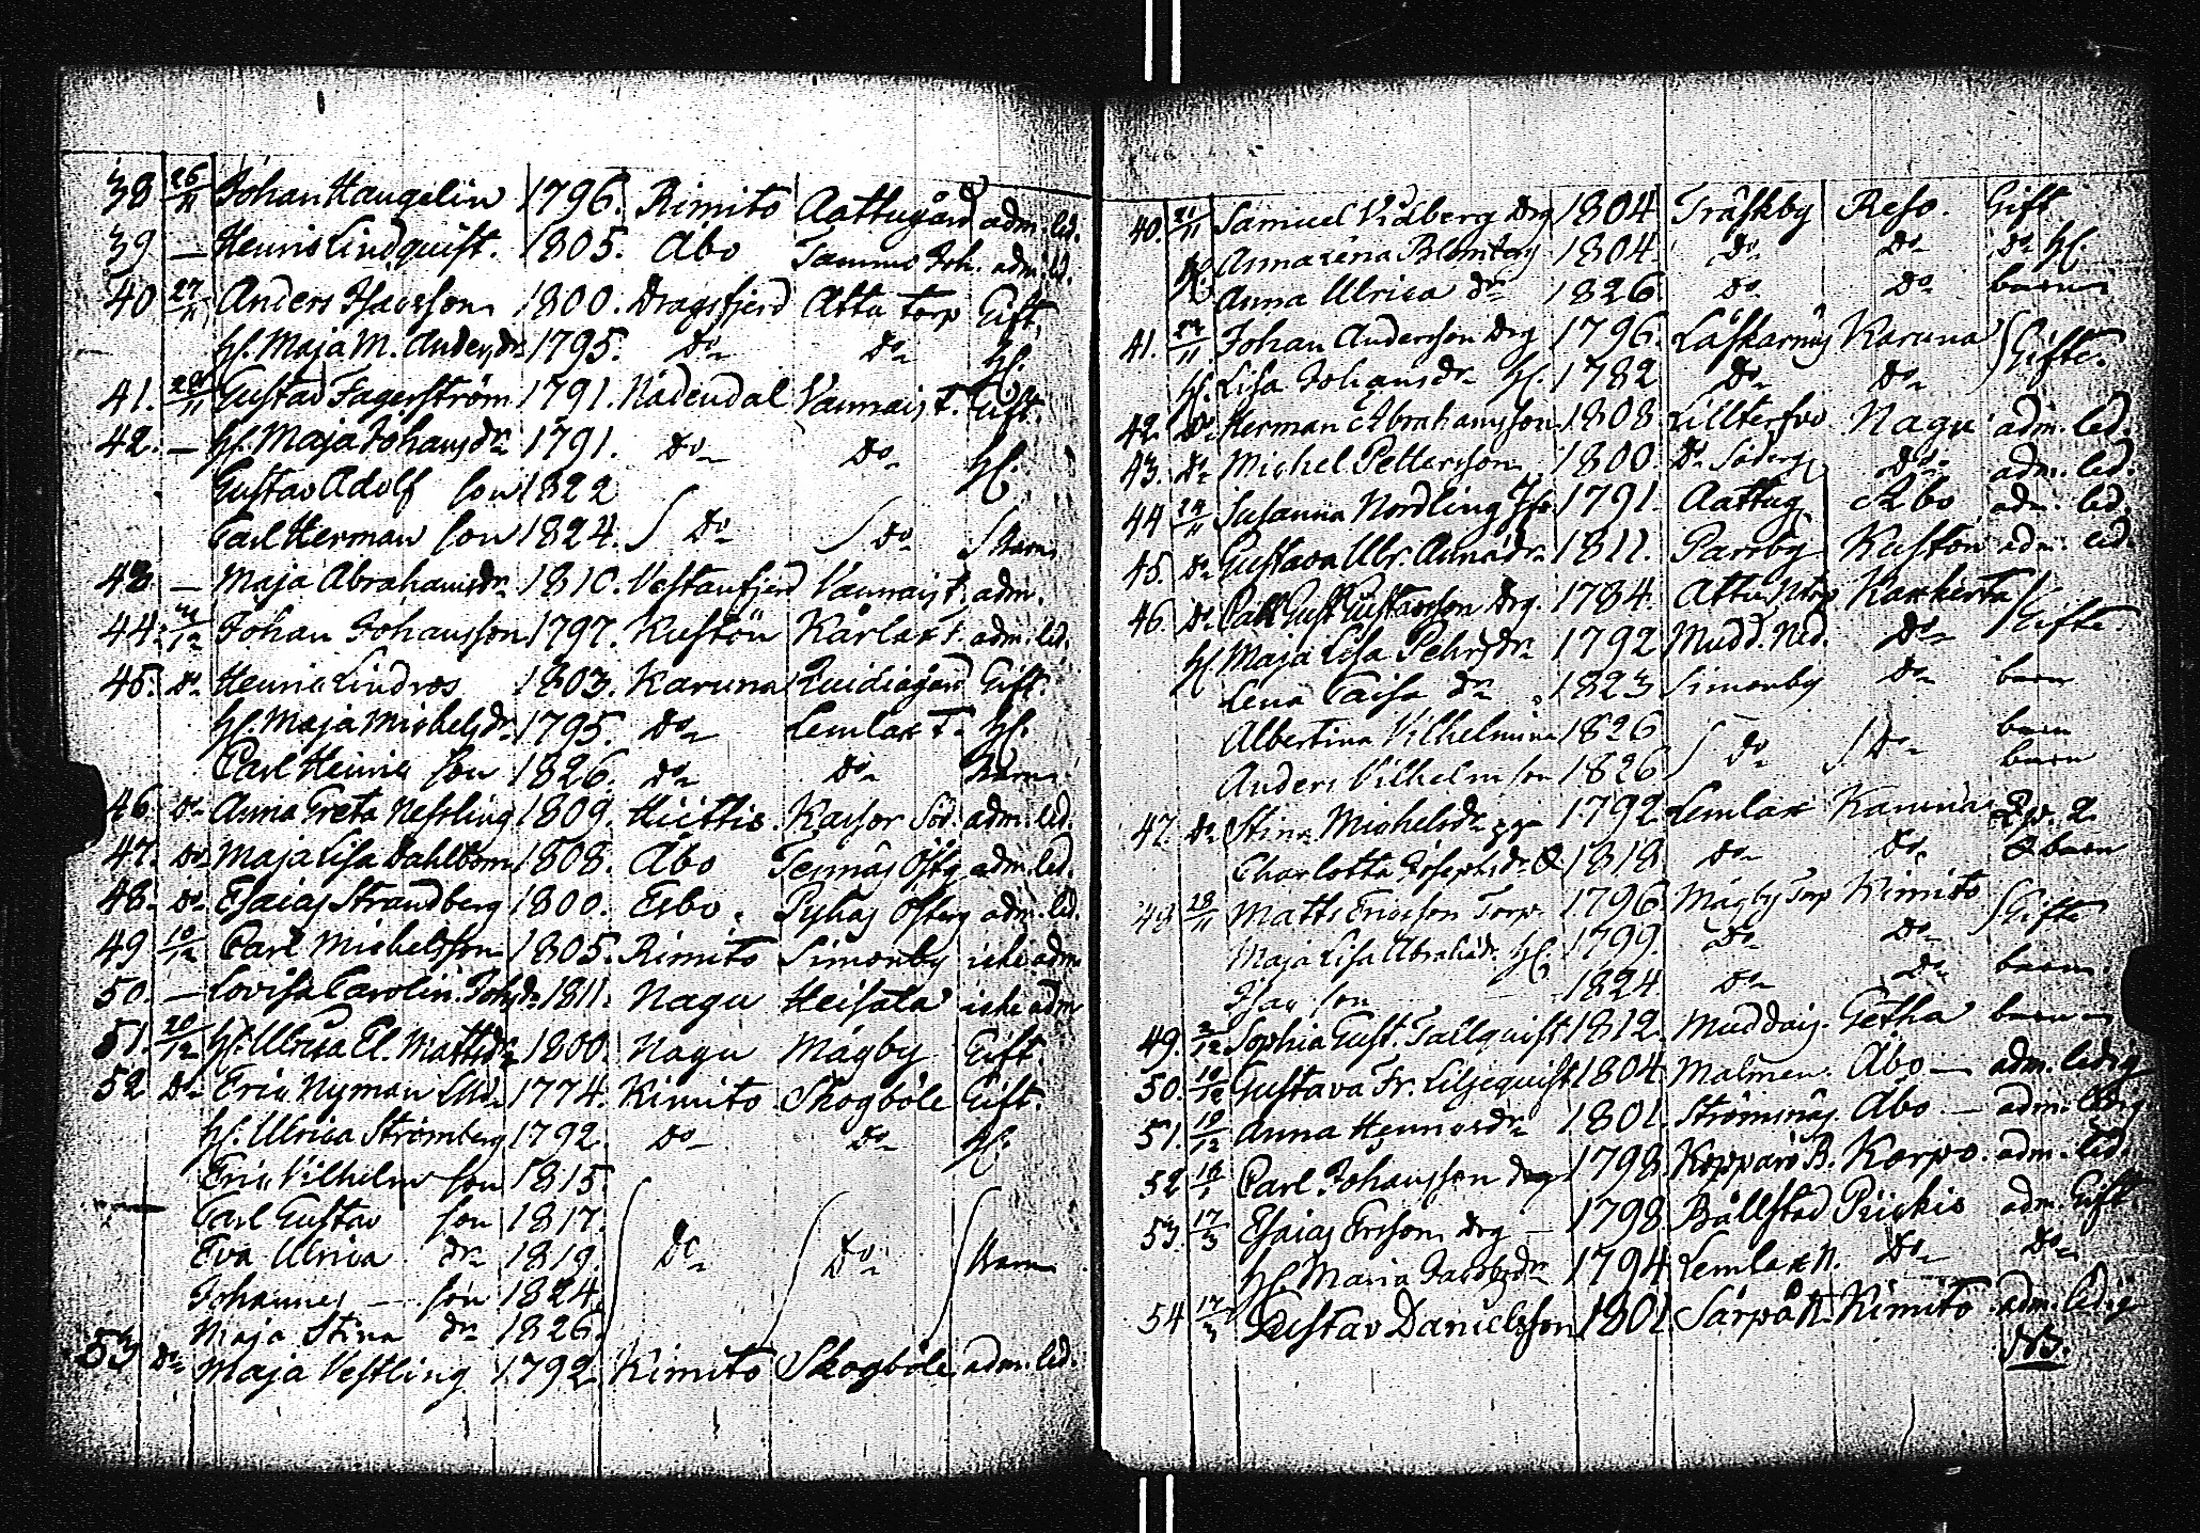 38 26/11 Johan Haugelin 1796. Rimito Aattugård adm. led.
39 — Henric Lindquist. 1805. Åbo Tammo Joh. adm. led.
40 27/11 Anders Isacsson 1800. Dragsfjerd Attu torp Gift.
H. Maja M. Andersdr 1795. Do Do H.
41. 28/11 Gustaf Fagerström 1791. Nådendal Vannais T. Gift.
42. — H. Maja Johansdr 1791. Do Do H.
Gustav Adolf son 1822
Carl Herman son 1824. Do Do Barn
43 — Maja Abrahamsdr 1810. Vestanfjerd Vannais t. adm.
44. /12 Johan Johansson 1797. Kustön Kårlax t. adm. led.
45. Do Henric Lindros 1803. Karuna Quidiagård Gift.
H. Maja Michelsdr 1795. Do Lemlax T. H.
Carl Henric son 1826. Do Do Barn
46. Do Anna Greta Nessling 1809. Hiittis Kaisor Söd. adm. led.
47. Do Maja Lisa Dahlbom 1808. Åbo Tennäs Östg adm. led.
48. Do Esaias Strandberg 1800. Esbo. Pyhas Österg adm. led.
49 10/12 Carl Michelsson 1805. Rimito Simonby icke adm
50. — Lovisa Carolin. Johsdr 1811. Nagu Heisala icke adm
51. 20/12 H. Ulrica El. Mattsdr 1800. Nagu Mågby Gift.
52 Do Eric Nyman 1774. Kimito Skogböle Gift.
H. Ulrica Strömberg 1792. Do Do H.
Eric Vilhelm son 1815.
Carl Gustav son 1817.
Eva Ulrica dr 1819. Do Do Barn
Johannes — son 1824.
Maja Stina dr 1826.
53 Do Maja Vestling 1792 Kimito Skogböle adm. led.
40. 21/11 Samuel Vidberg Drg 1804 Träskby Reso. Gift
Do Anna Lena Blomberg 1804. Do Do Do H.
Anna Ulrica dr 1826. Do Do barn
41. /11 Johan Andersson Drg 1796. Läskarnäs Karuna Gifte.
H. Lisa Johansdr H. 1782 Do Do
42. Do Herman Abrahamsson 1808. Lilltervo Nagu adm. led.
43. Do Michel Pettersson 1800. Do Söderg Do adm. led.
44 24/11 Susanna Nordling 1791. Aattug Åbo adm. led.
45. Do Gustava Ulr. Annadr 1811. Parsby Kustön adm. led.
46 Do Carl Gust Gustafsson Drg. 1784. Attu Ntrp Kaxkerta Gifte
H. Maja Lisa Pehrsdr 1792 Mudd. Ned. Do
Lena Caisa dr 1823 Simonby Do barn
Albertina Vilhelmina 1826 barn
Anders Vilhelm son 1826 Do Do barn
47. Do Stina Michelsdr 1792 Lemlax Karuna
Charlotta Josephsdr 1818 Do Do barn
48 28/11 Matts Ericsson Torp. 1796. Mågby Torp Kimito Gifte
Maja Lisa Abrahadr. H. 1799. Do Do
Isac son 1824 Do Do barn.
49. 2/12 Sophia Gust. Tallquist 1812. Muddais. Getha barn
50. 10/12 Gustava Fr. Liljequist 1804 Malmen. Åbo — adm. ledig
51. 10/12 Anna Henricsdr 1801. Strömsnäs. Åbo — adm. ledig.
52 18/1 Carl Johansson drg 1798. Kopparö B. Korpo. adm. led.
53. 17/3 Esaias Ersson drg — 1798. Bällstad Piikis adm. Gift
H. Maria Jacobsdr 1794 Lemlax N. Do Do
54 17/3 Gustav Danielsson 1801 Särpå N. Kimito adm. ledig